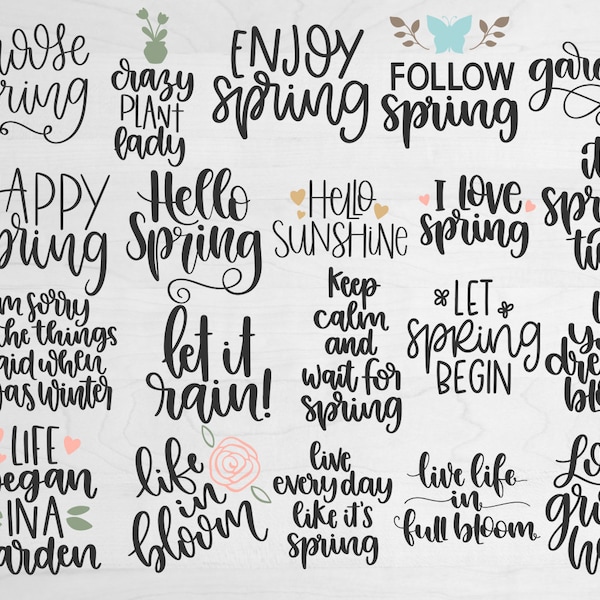 spring
crazy
PLANT
lady
ENJOY
spring
FOLLOW
spring
spring
Hello
Spring
HELLO
SUNSHINE
I LOVE
spring
sorry
the things
when
winter
let it
rain!
keep
calm
and
wait for
spring
LET
spring
BEGIN
LIFE
began
IN A
life
in
bloom
live
every day
like it's
spring
live life
in
full bloom